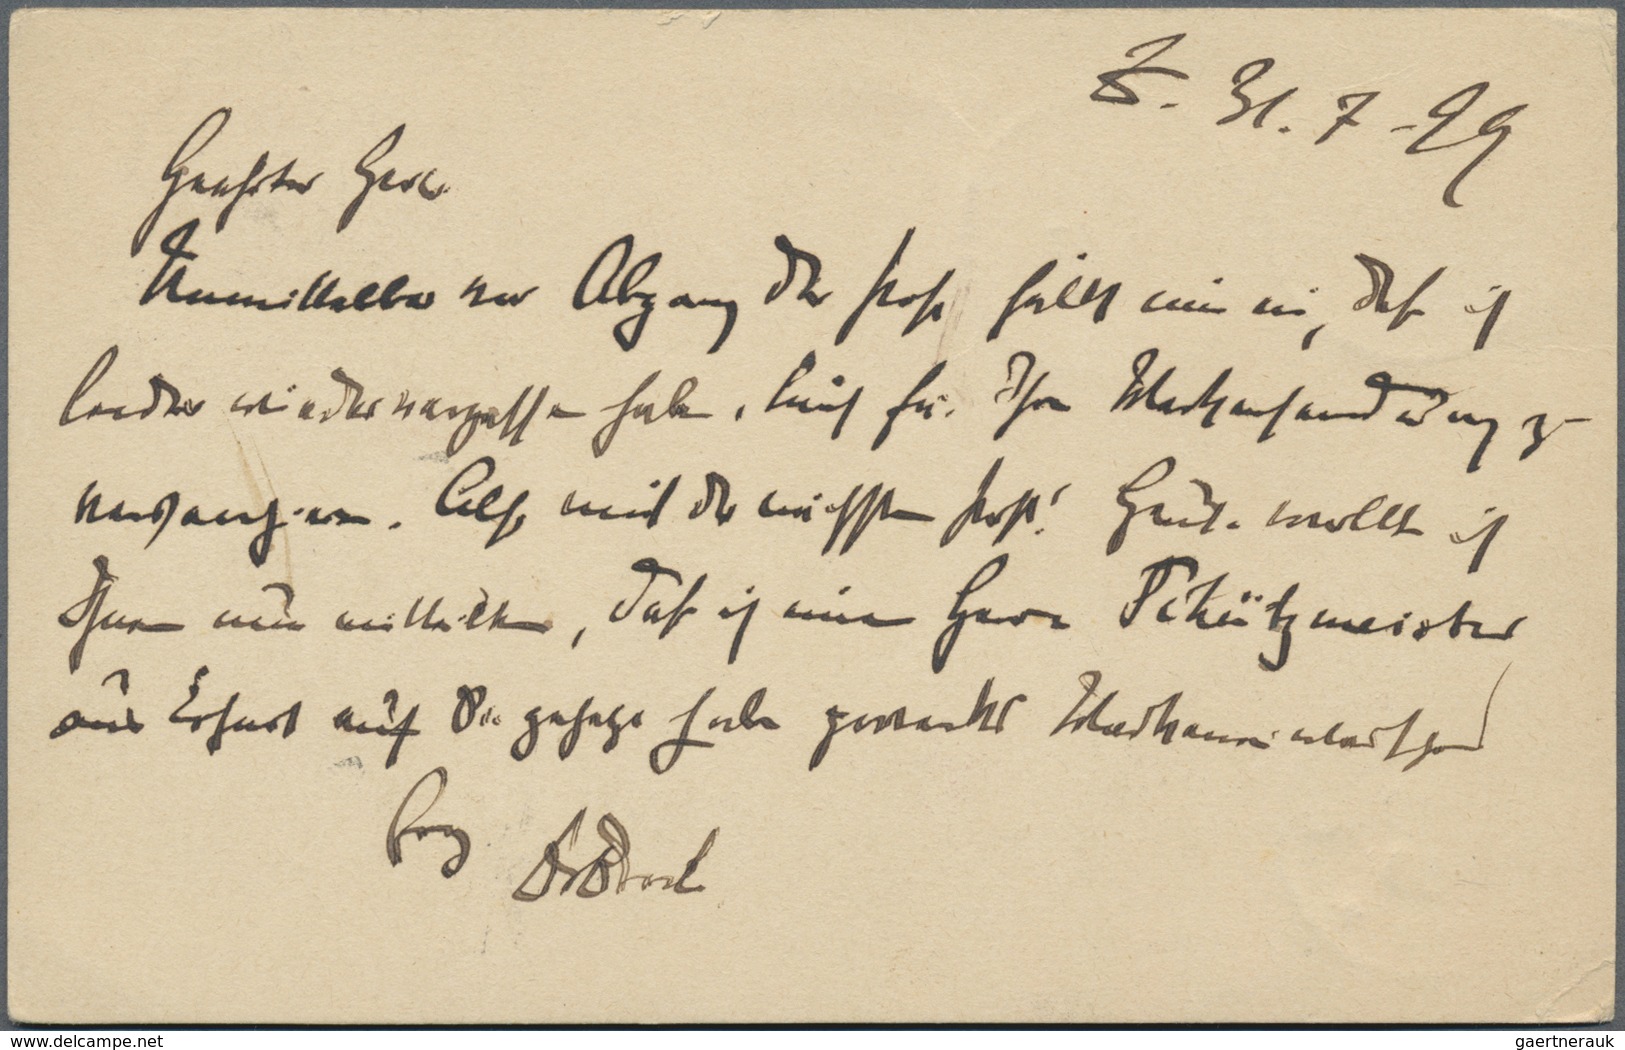 Z. 31. 7 - 99
Geehrter Herr
Unmittelbar vor Abgang der Post fällt mir ein, daß ich
leider wieder vergessen habe, mich für Ihre Markensendung zu
revanchieren. Also mit der nächsten Post! Heute wollte ich
Ihnen nur mitteilen, daß ich einen Herrn Schützmeister
aus Erfurt auf Sie gehetzt habe
Dr
delcampe.net
gaertnerauk